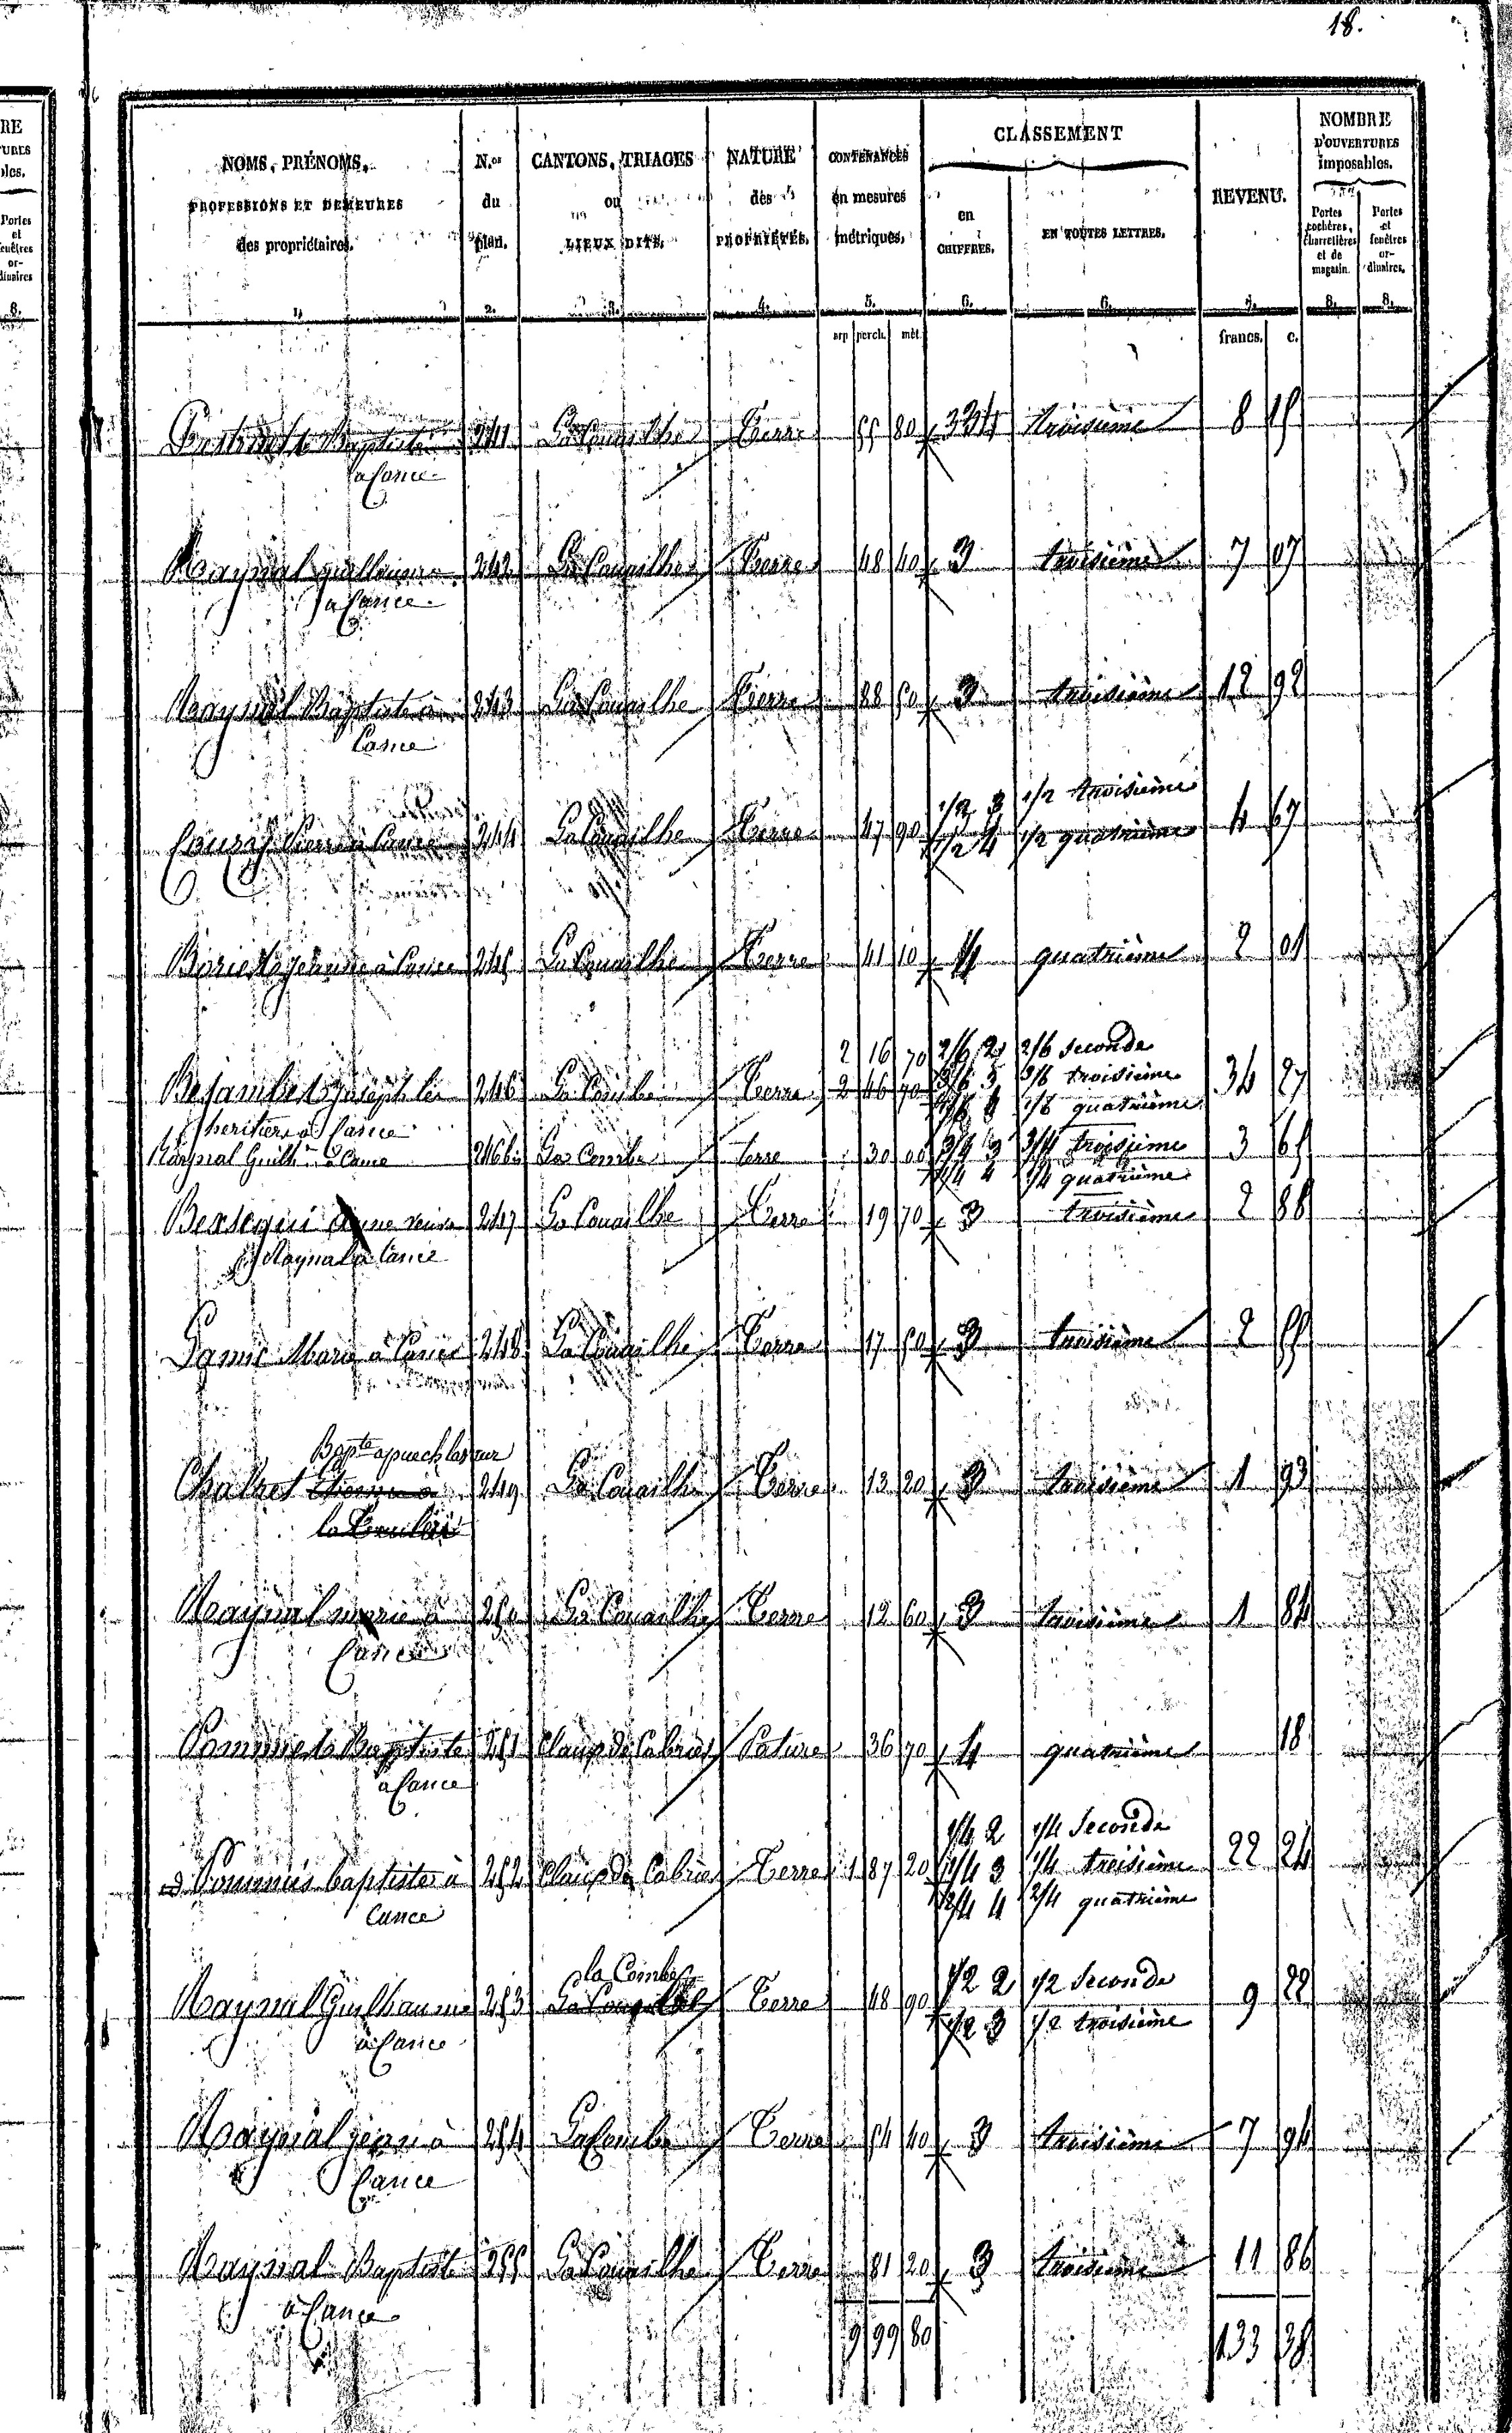 18.
RE
TURES
bles.
Portes
et
fenêtres
or-
dinaires
8.
NOMS, PRÉNOMS,
PROFESSIONS ET DEMEURES
des propriétaires.
1.
N.os
du
plan.
2.
CANTONS, TRIAGES
ou
LIEUX DITS.
3.
NATURE
des
PROPRIÉTÉS.
4.
CONTENANCES
en mesures
métriques.
5.
CLASSEMENT
en
CHIFFRES.
6.
EN TOUTES LETTRES.
6.
REVENU.
7.
NOMBRE
D'OUVERTURES
imposables.
Portes
cochères,
charretières
et de
magasin.
8.
Portes
et
fenêtres
or-
dinaires.
8.
arp perch. mèt. francs. c.
Baptiste 241 La Couailhe Terre 55 80 troisième 8 15
à Cance
Raynal guillaume 242 La Couailhe Terre 48 40 3 troisième 7 07
à Cance
Raynal Baptiste à 243 La Couailhe Terre 88 50 3 troisième 12 92
Cance
1/2 3 1/2 troisième
Pierre à Cance 244 La Couailhe Terre 47 90 1/2 4 1/2 quatrième 4 67
jeanne à Cance 245 La Couailhe Terre 41 10 4 quatrième 2 01
2 16 70 2/6 2 2/6 seconde
joseph les 246 La Combe Terre 2 46 70 3/6 3 3/6 troisième 34 27
1/6 4 1/6 quatrième
heritiers à Cance
Raynal Guilh.me à Cance 246 bis La Combe terre 30 00 3/4 3 3/4 troisième 3 65
1/4 4 1/4 quatrième
Bexsegui veuve 247 La Couailhe Terre 19 70 3 troisième 2 88
Raynal à Cance
Lamic Marie à Cance 248 La Couailhe Terre 17 50 3 troisième 2 55
Bapte a puech
Chalret Etienne à 249 La Couailhe Terre 13 20 3 troisième 1 93
Raynal marie à 250 La Couailhe Terre 12 60 3 troisième 1 84
Cance
Pommié Baptiste 251 Claux de Cabrie Pature 36 70 4 quatrième 18
à Cance
1/4 2 1/4 Seconde
Pommié baptiste à 252 Claux de Cabrie Terre 1 87 20 1/4 3 1/4 troisième 22 24
Cance 2/4 4 2/4 quatrième
la Combe
Raynal Guilhaume 253 La Couailhe Terre 48 90 1/2 2 1/2 Seconde 9 22
à Cance 1/2 3 1/2 troisième
Raynal jean à 254 La Combe Terre 54 40 3 troisième 7 94
Cance
Raynal Baptiste 255 La Couailhe Terre 81 20 3 troisième 11 86
à Cance
9 99 80 133 38